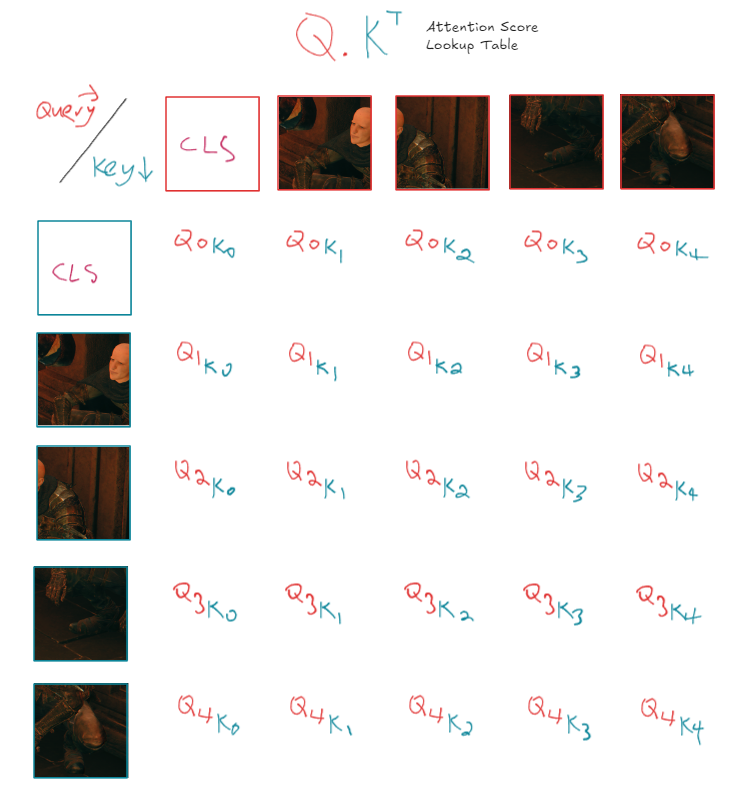 Q.K^T Attention Score
Lookup Table
Query →
Key ↓
CLS
CLS
Q0K0 Q0K1 Q0K2 Q0K3 Q0K4
Q1K0 Q1K1 Q1K2 Q1K3 Q1K4
Q2K0 Q2K1 Q2K2 Q2K3 Q2K4
Q3K0 Q3K1 Q3K2 Q3K3 Q3K4
Q4K0 Q4K1 Q4K2 Q4K3 Q4K4